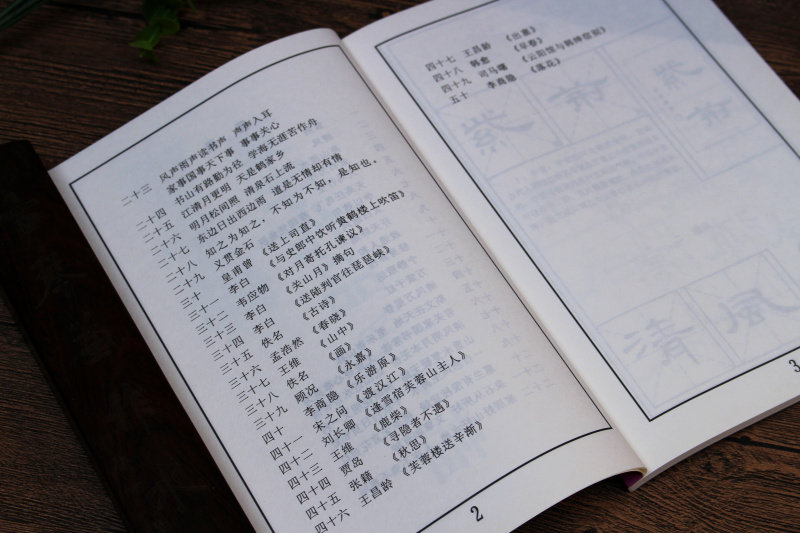 风声雨声读书声 声声入耳
二十三 家事国事天下事 事事关心
二十四 书山有路勤为径 学海无涯苦作舟
二十五 江清月更明 天是鹤家乡
二十六 明月松间照 清泉石上流
二十七 东边日出西边雨 道是无情却有情
二十八 知之为知之，不知为不知，是知也。
二十九 义贯金石
三十 皇甫曾 《送上司直》
三十一 李白 《与史郎中饮听黄鹤楼上吹笛》
三十二 韦应物 《对月寄托孔谏议》
三十三 李白 《关山月》摘句
三十四 李白 《送陆判官往琵琶峡》
三十五 佚名 《古诗》
三十六 孟浩然 《春晓》
三十七 王维 《山中》
三十八 佚名 《画》
三十九 顾况 《永嘉》
四十 李商隐 《乐游原》
四十一 宋之问 《渡汉江》
四十二 刘长卿 《逢雪宿芙蓉山主人》
四十三 王维 《鹿柴》
四十四 贾岛 《寻隐者不遇》
四十五 张籍 《秋思》
四十六 王昌龄 《芙蓉楼送辛渐》
2
四十七 王昌龄 《出塞》
四十八 韩愈 《早春》
四十九 司马曙 《云阳馆与韩绅宿别》
五十 李商隐 《落花》
3